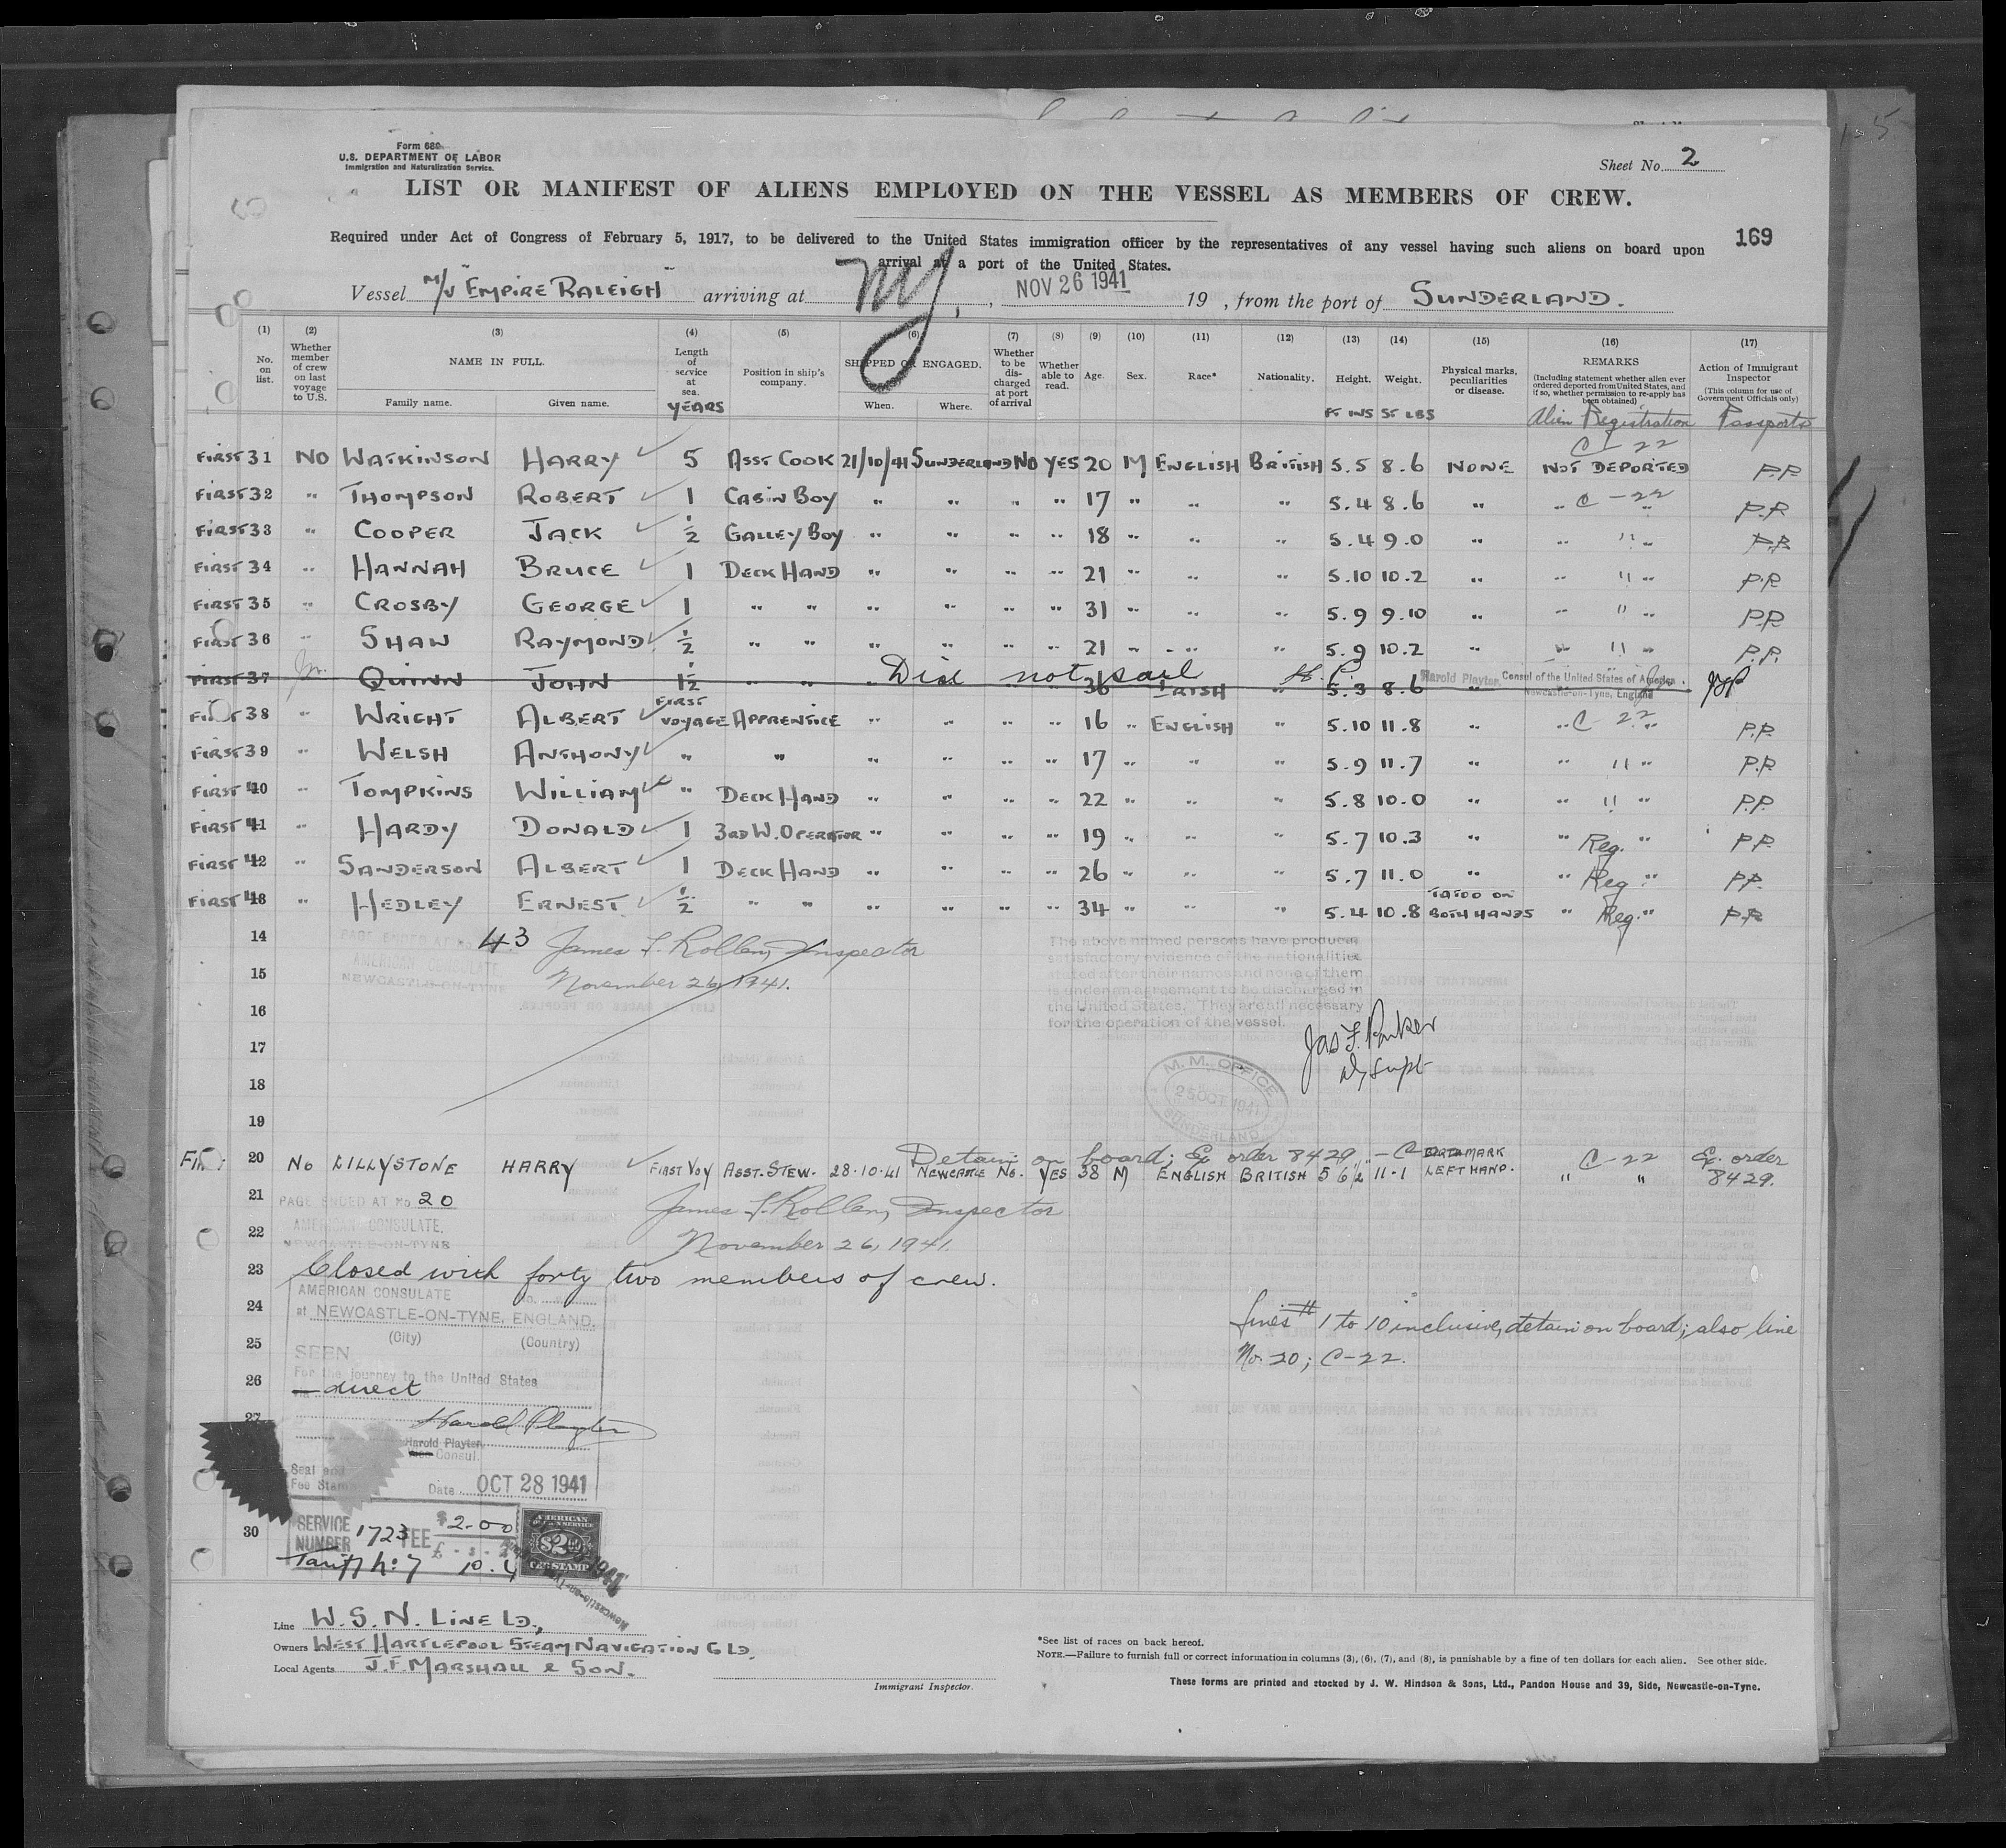 Form 680
U.S. DEPARTMENT OF LABOR
Immigration and Naturalization Service.
Sheet No. 2
LIST OR MANIFEST OF ALIENS EMPLOYED ON THE VESSEL AS MEMBERS OF CREW.
169
Required under Act of Congress of February 5, 1917, to be delivered to the United States immigration officer by the representatives of any vessel having such aliens on board upon
arrival at a port of the United States.
Vessel M/V "EMPIRE RALEIGH" arriving at NY, NOV 26 1941 19 , from the port of SUNDERLAND.
(1) No. on list.
(2) Whether member of crew on last voyage to U.S.
(3) NAME IN FULL. Family name. Given name.
(4) Length of service at sea. YEARS
(5) Position in ship's company.
(6) SHIPPED OR ENGAGED. When. Where.
(7) Whether to be discharged at port of arrival
(8) Whether able to read.
(9) Age.
(10) Sex.
(11) Race*
(12) Nationality.
(13) Height. FT INS
(14) Weight. ST LBS
(15) Physical marks, peculiarities or disease.
(16) REMARKS (Including statement whether alien ever ordered deported from United States, and if so, whether permission to re-apply has been obtained) Alien Registration
(17) Action of Immigrant Inspector (This column for use of Government Officials only) Passports
C-22
FIRST 31 NO WATKINSON HARRY 5 ASST COOK 21/10/41 SUNDERLAND NO YES 20 M ENGLISH BRITISH 5.5 8.6 NONE NOT DEPORTED P.P.
FIRST 32 " THOMPSON ROBERT 1 CABIN BOY " " " " 17 " " " 5.4 8.6 " " C-22 " P.P.
FIRST 33 " COOPER JACK 1/2 GALLEY BOY " " " " 18 " " " 5.4 9.0 " " " " P.P.
FIRST 34 " HANNAH BRUCE 1 DECK HAND " " " " 21 " " " 5.10 10.2 " " " " P.P.
FIRST 35 " CROSBY GEORGE 1 " " " " " " 31 " " " 5.9 9.10 " " " " P.P.
FIRST 36 " SHAW RAYMOND 1/2 " " " " " " 21 " " " 5.9 10.2 " " " " P.P.
FIRST 37 QUINN JOHN 1 1/2 " " " Did not sail 36 IRISH " H.P. 5.3 8.6 " Harold Playter, Consul of the United States of America. Newcastle-on-Tyne, England
FIRST 38 " WRIGHT ALBERT FIRST VOYAGE APPRENTICE " " " " 16 " ENGLISH " 5.10 11.8 " " C-22 " P.P.
FIRST 39 " WELSH ANTHONY " " " " " " 17 " " " 5.9 11.7 " " " " P.P.
FIRST 40 " TOMPKINS WILLIAM " DECK HAND " " " " 22 " " " 5.8 10.0 " " " " P.P.
FIRST 41 " HARDY DONALD 1 3RD W. OPERATOR " " " " 19 " " " 5.7 10.3 " " Reg. " P.P.
FIRST 42 " SANDERSON ALBERT 1 DECK HAND " " " " 26 " " " 5.7 11.0 " " Reg. " P.P.
FIRST 43 " HEDLEY ERNEST 1/2 " " " " " " 34 " " " 5.4 10.8 TATOO ON BOTH HANDS " Reg. " P.P.
14 PAGE ENDED AT No. 43 James F. Rollen, Inspector
AMERICAN CONSULATE
15 NEWCASTLE-ON-TYNE November 26, 1941.
The above named persons have produced
satisfactory evidence of the nationalities
stated after their names and none of them
is under an agreement to be discharged in
the United States. They are all necessary
for the operation of the vessel.
16
17
Jas F. Parker
Dy Supt
M. M. OFFICE
25 OCT 1941
SUNDERLAND
18
19
Detain on board; Ex order 8429 - C-
20 No LILLYSTONE HARRY FIRST VOY ASST. STEW. 28.10.41 NEWCASTLE NO. YES 38 M ENGLISH BRITISH 5 6 1/2 11-1 BIRTH MARK LEFT HAND. C-22 " " Ex. order 8429.
21 PAGE ENDED AT No 20 James F. Rollen, Inspector
AMERICAN CONSULATE,
22 NEWCASTLE-ON-TYNE November 26, 1941.
23 Closed with forty two members of crew.
24 AMERICAN CONSULATE No.
at NEWCASTLE-ON-TYNE, ENGLAND.
25 (City) (Country)
Lines # 1 to 10 inclusive, detain on board; also line
No. 20; C-22.
SEEN
26 For the journey to the United States
via direct
27 Harold Playter
Harold Playter
Consul.
Seal and
Fee Stamp
Date OCT 28 1941
30 SERVICE NUMBER 1723 FEE $2.00
£ - s -
Tariff No 7 10.4
AMERICAN
$2.00
FEE STAMP
Newcastle-on-Tyne
Line W.S.N. LINE LD.,
Owners WEST HARTLEPOOL STEAM NAVIGATION Co LD.
Local Agents J.F. MARSHALL & SON.
Immigrant Inspector.
*See list of races on back hereof.
NOTE.—Failure to furnish full or correct information in columns (3), (6), (7), and (8), is punishable by a fine of ten dollars for each alien. See other side.
These forms are printed and stocked by J. W. Hindson & Sons, Ltd., Pandon House and 39, Side, Newcastle-on-Tyne.